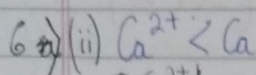 6 a) (ii) Ca²⁺ < Ca